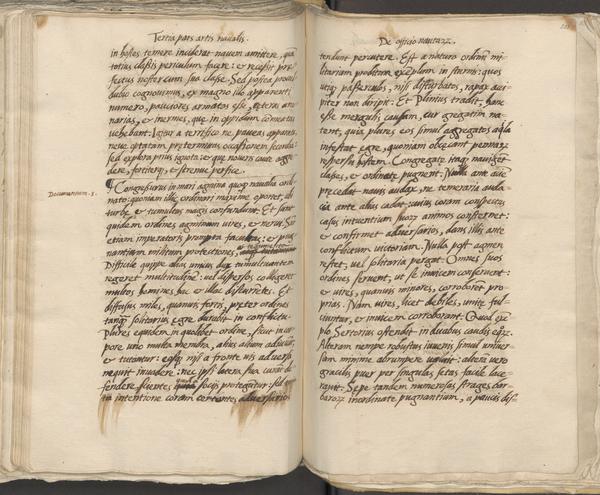 Tertia pars artis navalis.
in hostes temere inciderat navem amittere, quā
totius classis periculum facere: et recessit prę
fectus noster cum sua classe. Sed postea procul
dubio cognovimus, ex magno illo apparenti
numero, pauciores armatas esse, ceteras one
narias, et inermes, quę in oppidum cōmeatus
vehebant. Igitur a terrifico ne paveas apparatu,
neve optatam pretermittas occasionem secundā:
sed explora prius ignota: et quę noveris caute aggre
dere, fortiterq; et strenue perfice.
Documentum. 5.
Congressurus in mari agmina quoq; navalia ordi
nato: quoniam illic ordinari maxime oportet, ubi
turbę et tumultus magis confundunt. Et sunt
quidem ordines agminum vires, et nervi. Sūt
etiam imperatoris prompta facultas: et pug
nantium militum protectiones,
Difficile quippe dux unicus dissimulantem
regeret multitudinē: vel dispersos colligeret
multos homines huc et illuc discurrētes. Et
diffusus miles, quamvis fortis, pręter ordines
tanq; solitarius egre durabit in conflictu.
Plures equidem in quolibet ordine, sicut in cor
pore uno multa membra, alius alium adiuvāt
et tutantur: eosq; nisi a fronte vis adversa
nequit invadere: nec ipsi latera sua curāt de
fendere fluentes, socijs proteguntur: sed
ta intentione coram certantes adversarios
De officio nautarȝ.
tendunt percutere. Est a natura ordinū mi
litarium proditum exemplum in sturnis: quos
utiq; passerculos, nisi disturbatos, rapax acci
piter non diripit. Et Plinius tradit, hanc
esse mergulis causam, cur gregatim na
tent, quia plures eos simul aggregatos aq̄la
infestat egre, quoniam obcęcant pennarȝ
respersu hostem. Congregatę itaq; navigēt
classes, et ordinatę pugnent. Nulla ante aciē
precedat navis audax, ne temeraria auda-
cia ante alias cadat: cuius coram conspectus
casus intuentium suorȝ animos consternet:
et confirmet adversarios, dans illis ante
conflictum victoriam. Nulla post agmen
restet, vel solitaria pergat. Omnes suos
ordines servent, ut se invicem conservent:
et vires, quamvis minores, corroboret pro-
prias. Nam vires, licet debiles, unitę ful-
ciuntur, et invicem corroborant. Quod exē
plo Sertorius ostendit in duabus caudis eq̄rȝ.
Alteram nempe robustus iuvenis simul univer-
sam minime abrumpere valuit: alterā vero
gracilis puer per singulas setas facile lace-
ravit. Sepe tandem numerosas strages bar-
barorȝ inordinate pugnantium, a paucis dis-